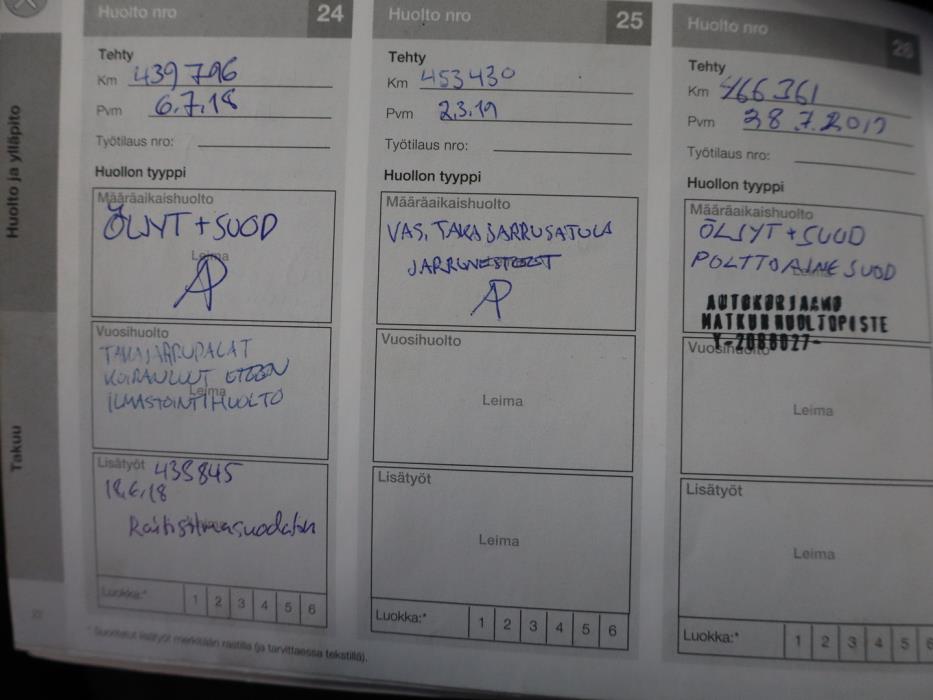 Huolto ja ylläpito
Takuu
Huolto nro 24
Tehty
Km 439796
Pvm 6.7.18
Työtilaus nro:
Huollon tyyppi
Määräaikaishuolto
ÖLJYT + SUOD
Leima
Vuosihuolto
TAKAJARRUPALAT
KOIRANLUUT ETEEN
Leima
ILMASTOINTIHUOLTO
Lisätyöt 438845
18.6.18
Raitisilmasuodatin
Luokka:* 1 2 3 4 5 6
* Suoritetut lisätyöt merkitään rastilla (ja tarvittaessa tekstillä).
Huolto nro 25
Tehty
Km 453430
Pvm 2.3.19
Työtilaus nro:
Huollon tyyppi
Määräaikaishuolto
VAS. TAKAJARRUSATULA
JARRUNESTEET
Vuosihuolto
Leima
Lisätyöt
Leima
Luokka:* 1 2 3 4 5 6
Huolto nro 26
Tehty
Km 466361
Pvm 28.7.2019
Työtilaus nro:
Huollon tyyppi
Määräaikaishuolto
ÖLJYT + SUOD
POLTTOAINESUOD
AUTOKORJAAMO
MATKUN HUOLTOPISTE
Y-2088027-
Vuosihuolto
Leima
Lisätyöt
Leima
Luokka:* 1 2 3 4 5 6